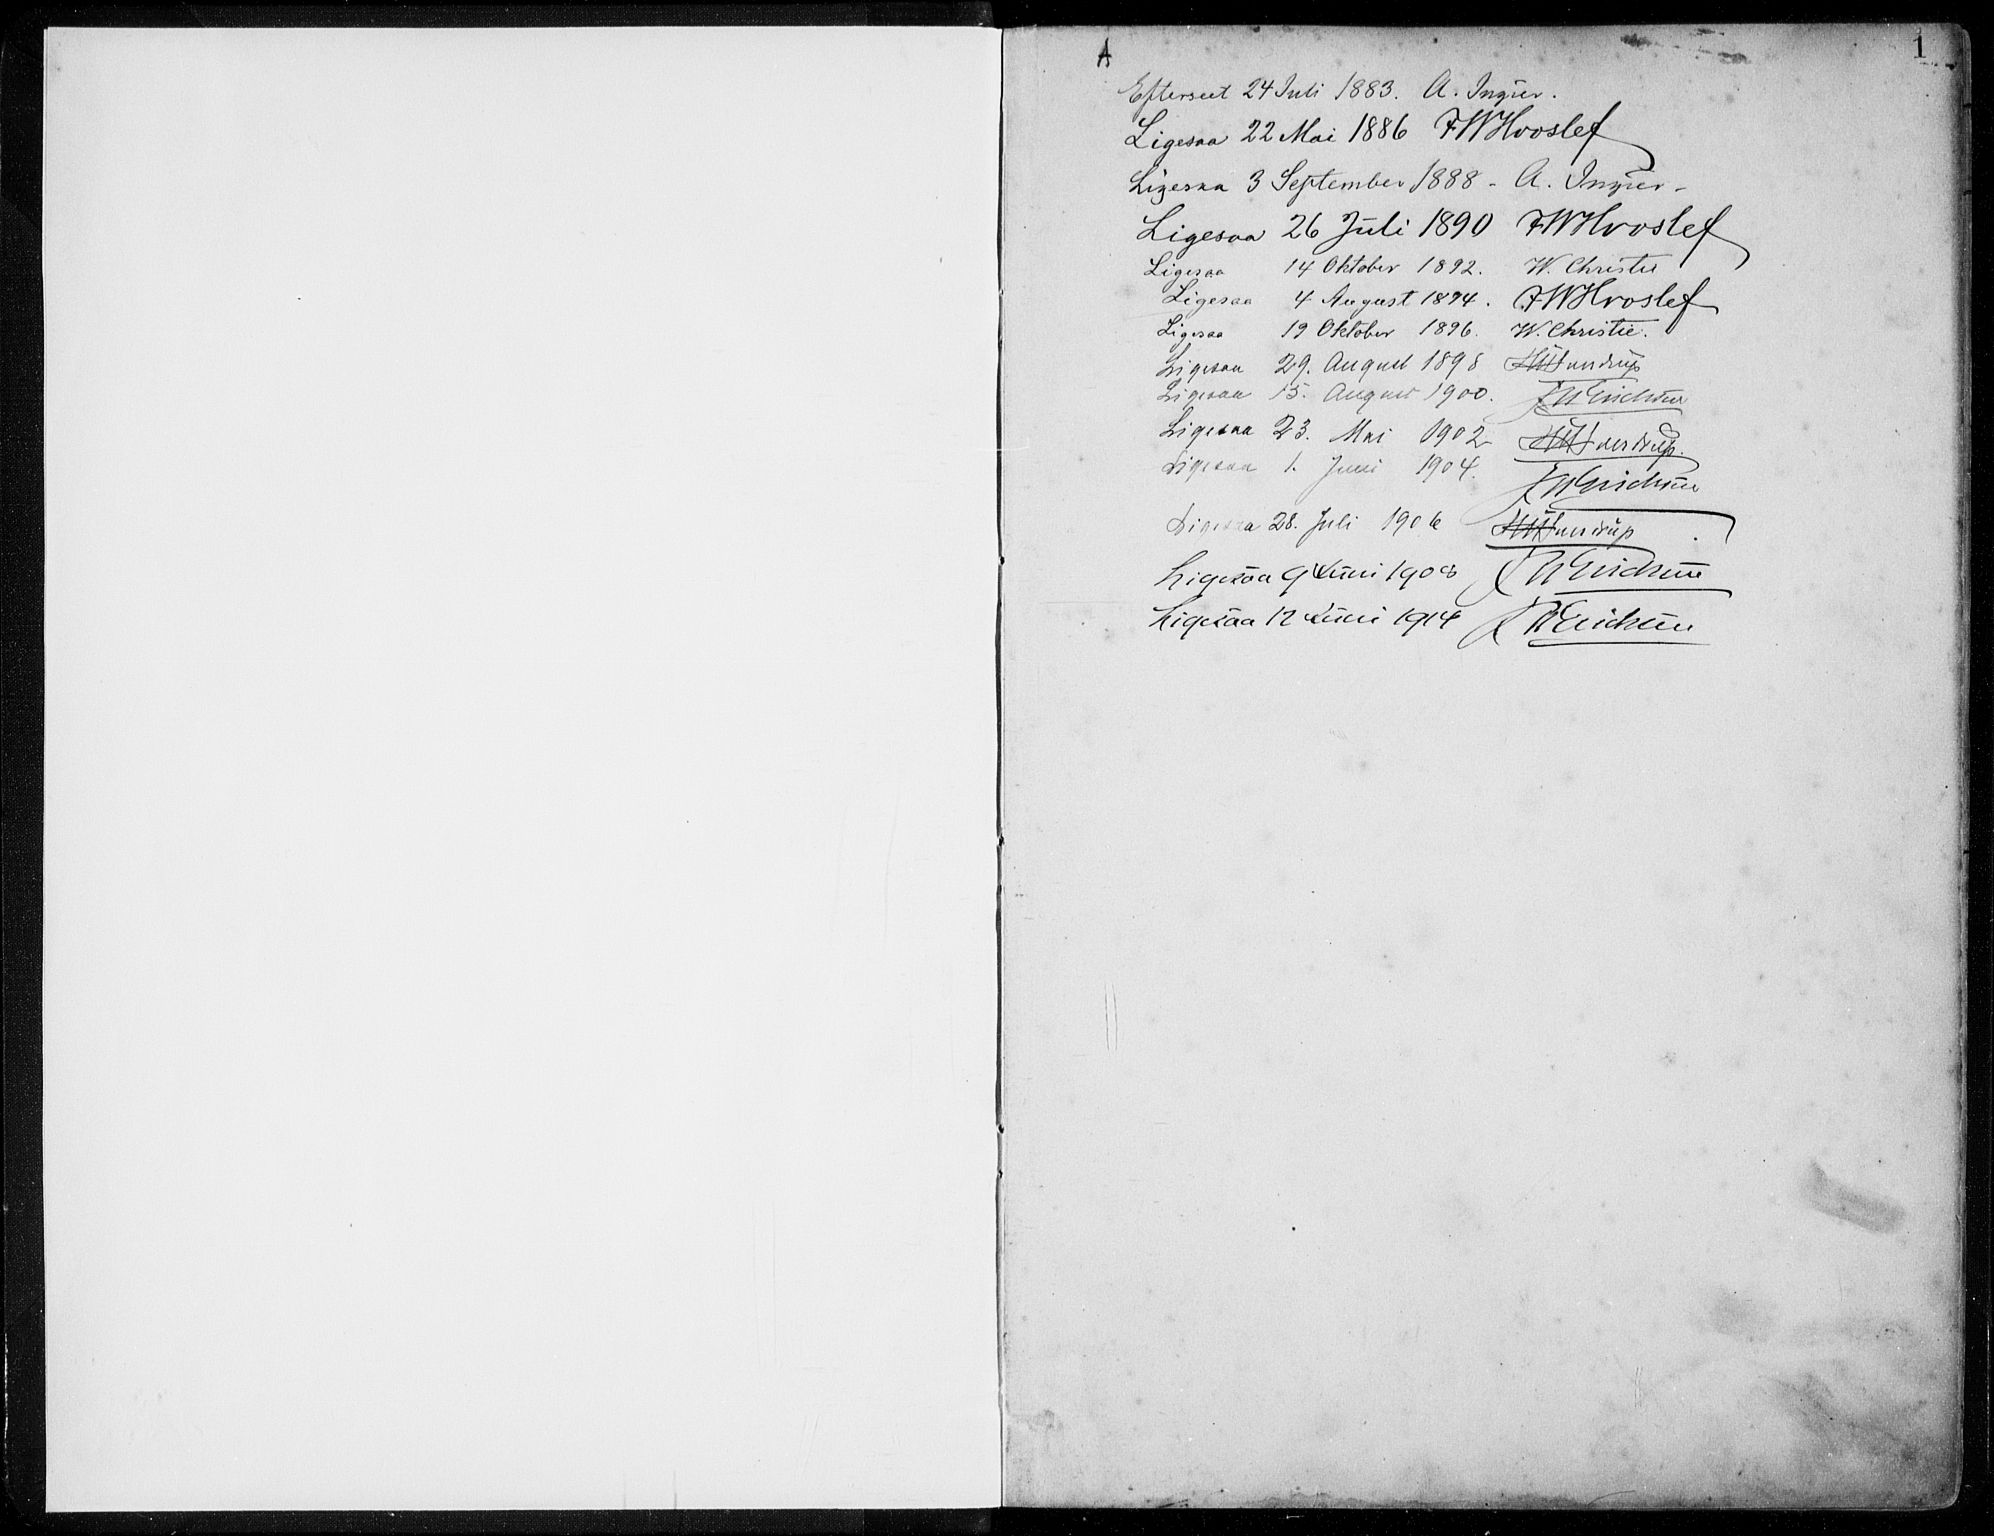 A
1
Efterseet 24 Juli 1883. A. Ingier.
Ligesaa 22 Mai 1886 FWHvoslef
Ligesaa 3 September 1888 - A. Ingier -
Ligesaa 26 Juli 1890 FWHvoslef
Ligesaa 14 Oktober 1892. W. Christie
Ligesaa 4 August 1894. FWHvoslef
Ligesaa 19 Oktober 1896. W. Christie.
Ligesaa 29. August 1898
Ligesaa 15. August 1900.
Ligesaa 23. Mai 1902
Ligesaa 1. Juni 1904.
Ligesaa 28. Juli 1906
Ligesaa 9 Juni 1908
Ligesaa 12 Juni 1914